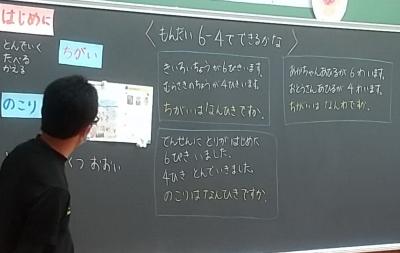 はじめに
とんでいく
たべる
かえる
ちがい
のこり
くつ おおい
〈もんだい 6-4でできるかな〉
きいろいちょうが6ぴきいます。
むらさきのちょうが4ひきいます。
ちがいはなんびきですか。
でんせんに とりが はじめに
6ぴき いました。
4ひき とんでいきました。
のこりはなんびきですか。
あかちゃんあひるが 6わいます。
おとうさんあひるが 4わいます。
ちがいは なんわですか。